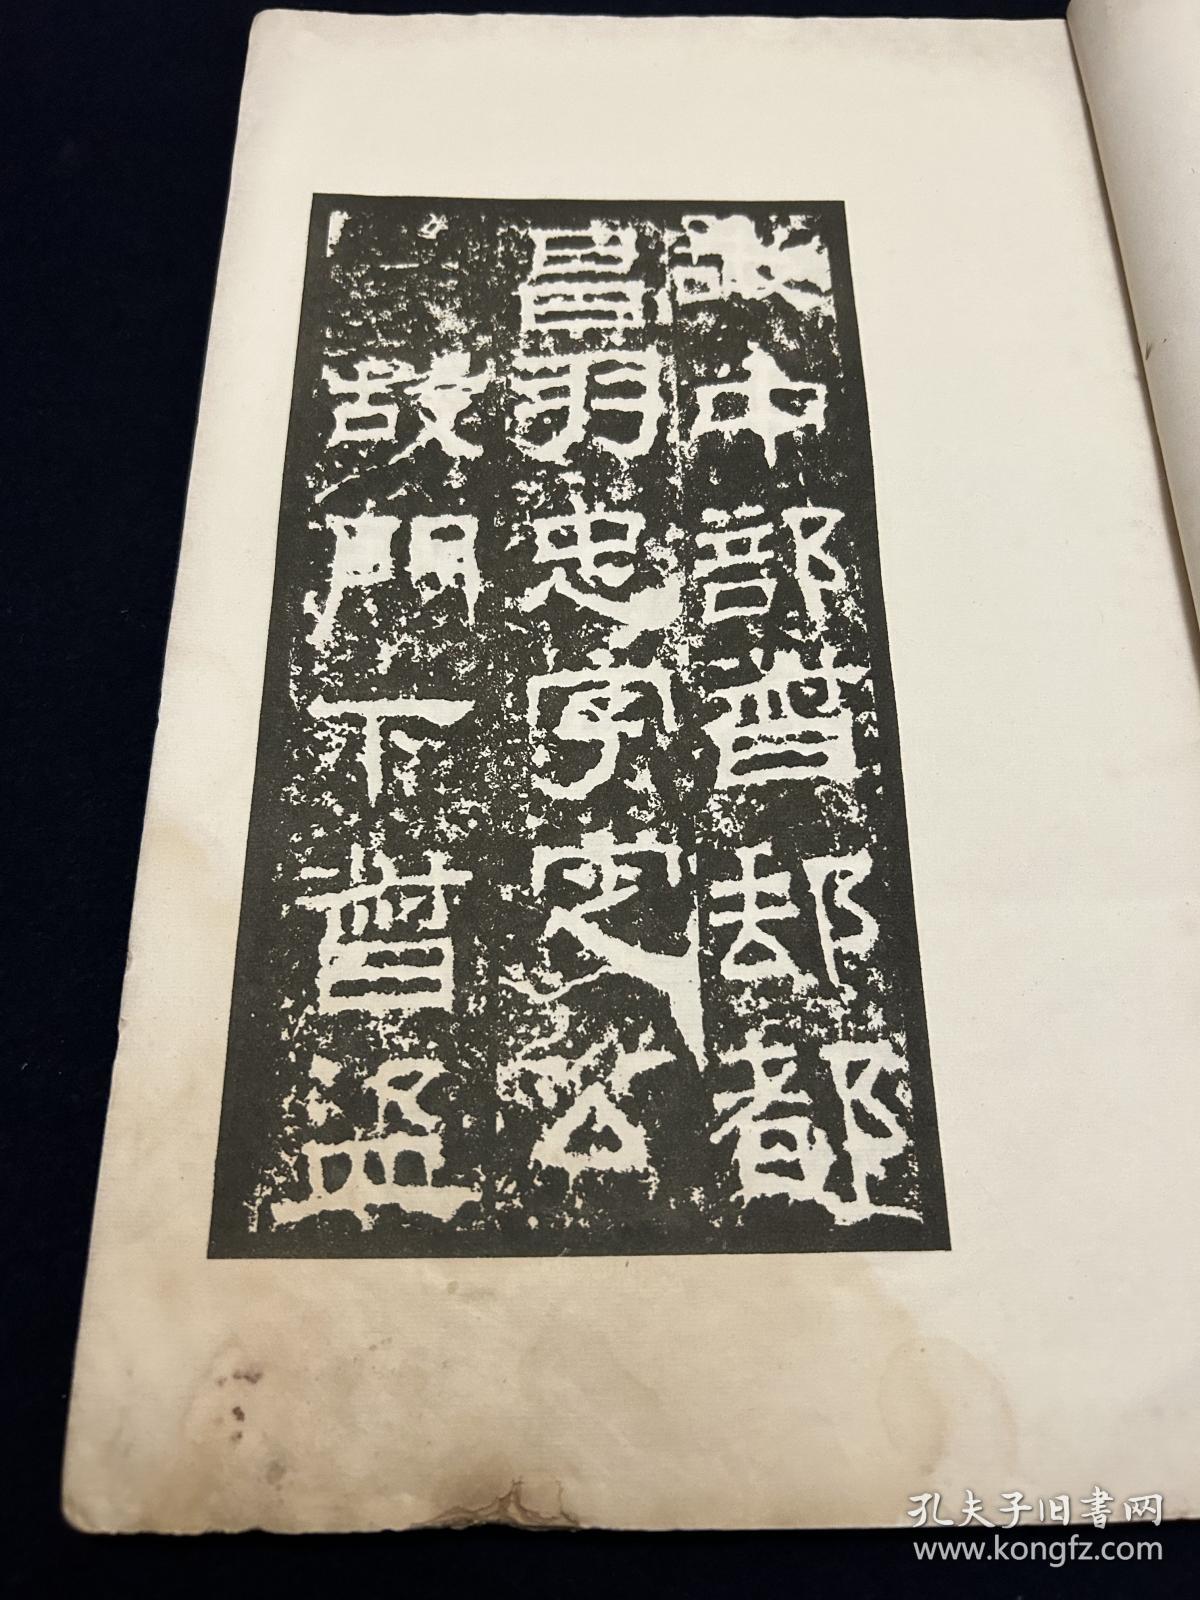 故中部督郵都
昌羽忠字定公
故門下督盜
孔夫子旧書网
www.kongfz.com